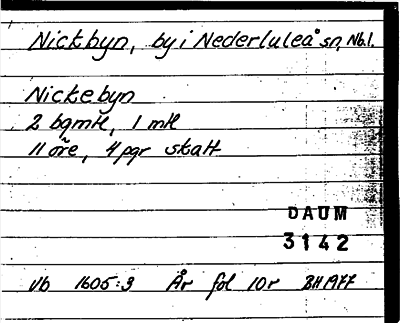 Nickbyn, by i Nederluleå sn, Nb.l.
Nickebyn
2 bqmtl, 1 mtl
11 öre, 4 pgr skatt
DAUM
3142
Vb 1605:3 År fol 10r BH1977